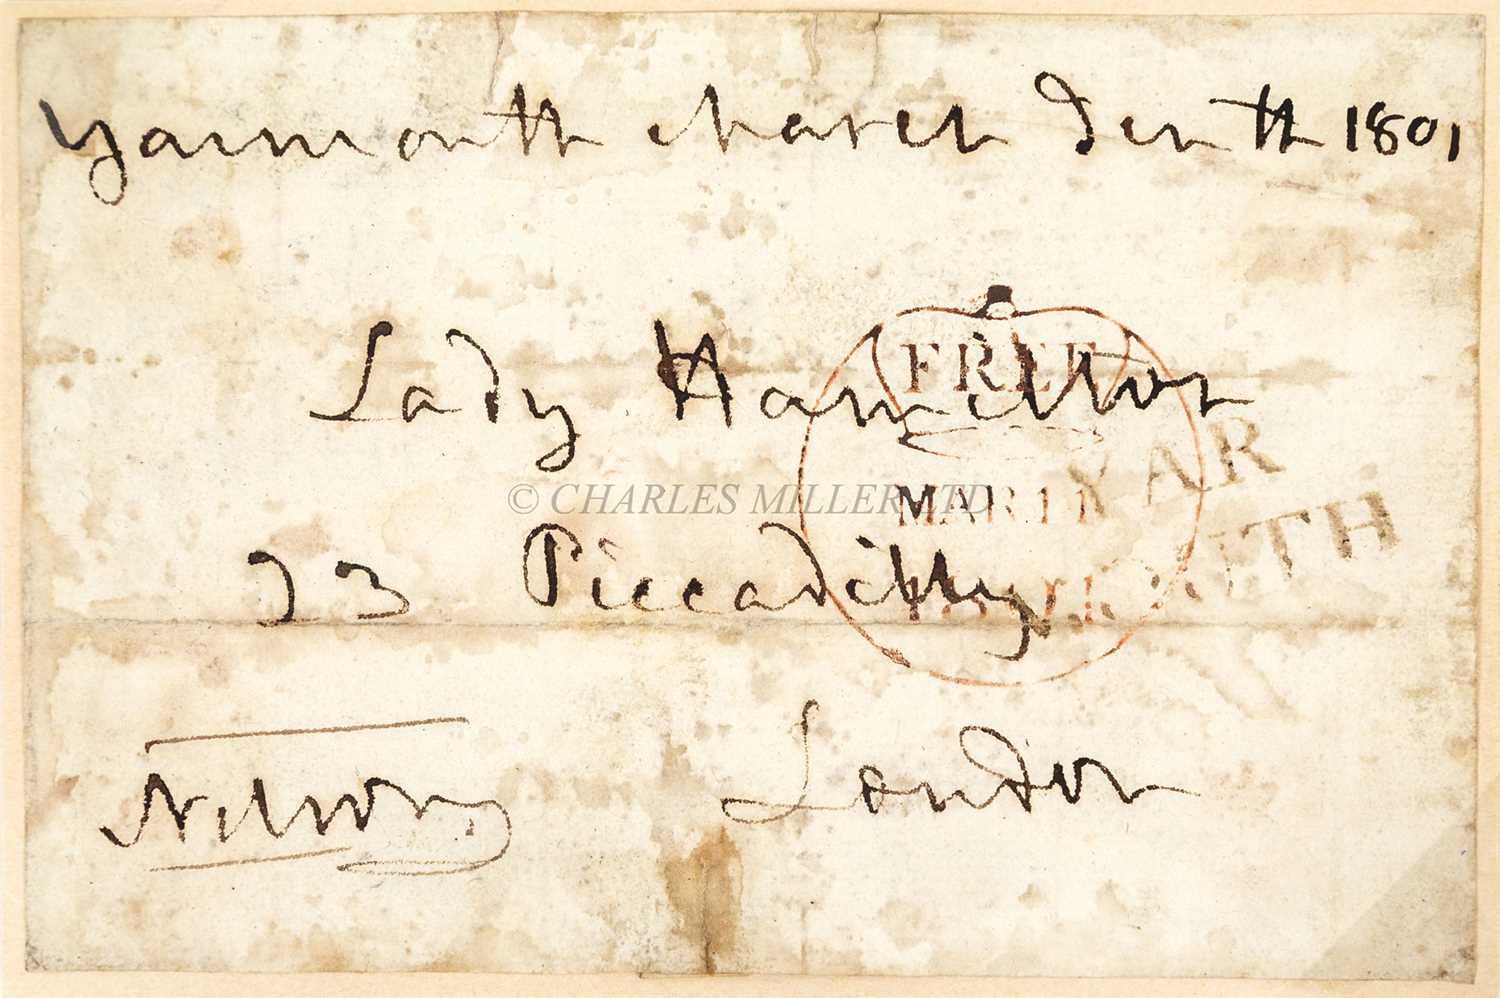 Yarmouth March Tenth 1801
FREE
Lady Hamilton
YAR
MAR 11
© CHARLES MILLER LTD
MOUTH
23 Piccadilly
1801
Nelson
London